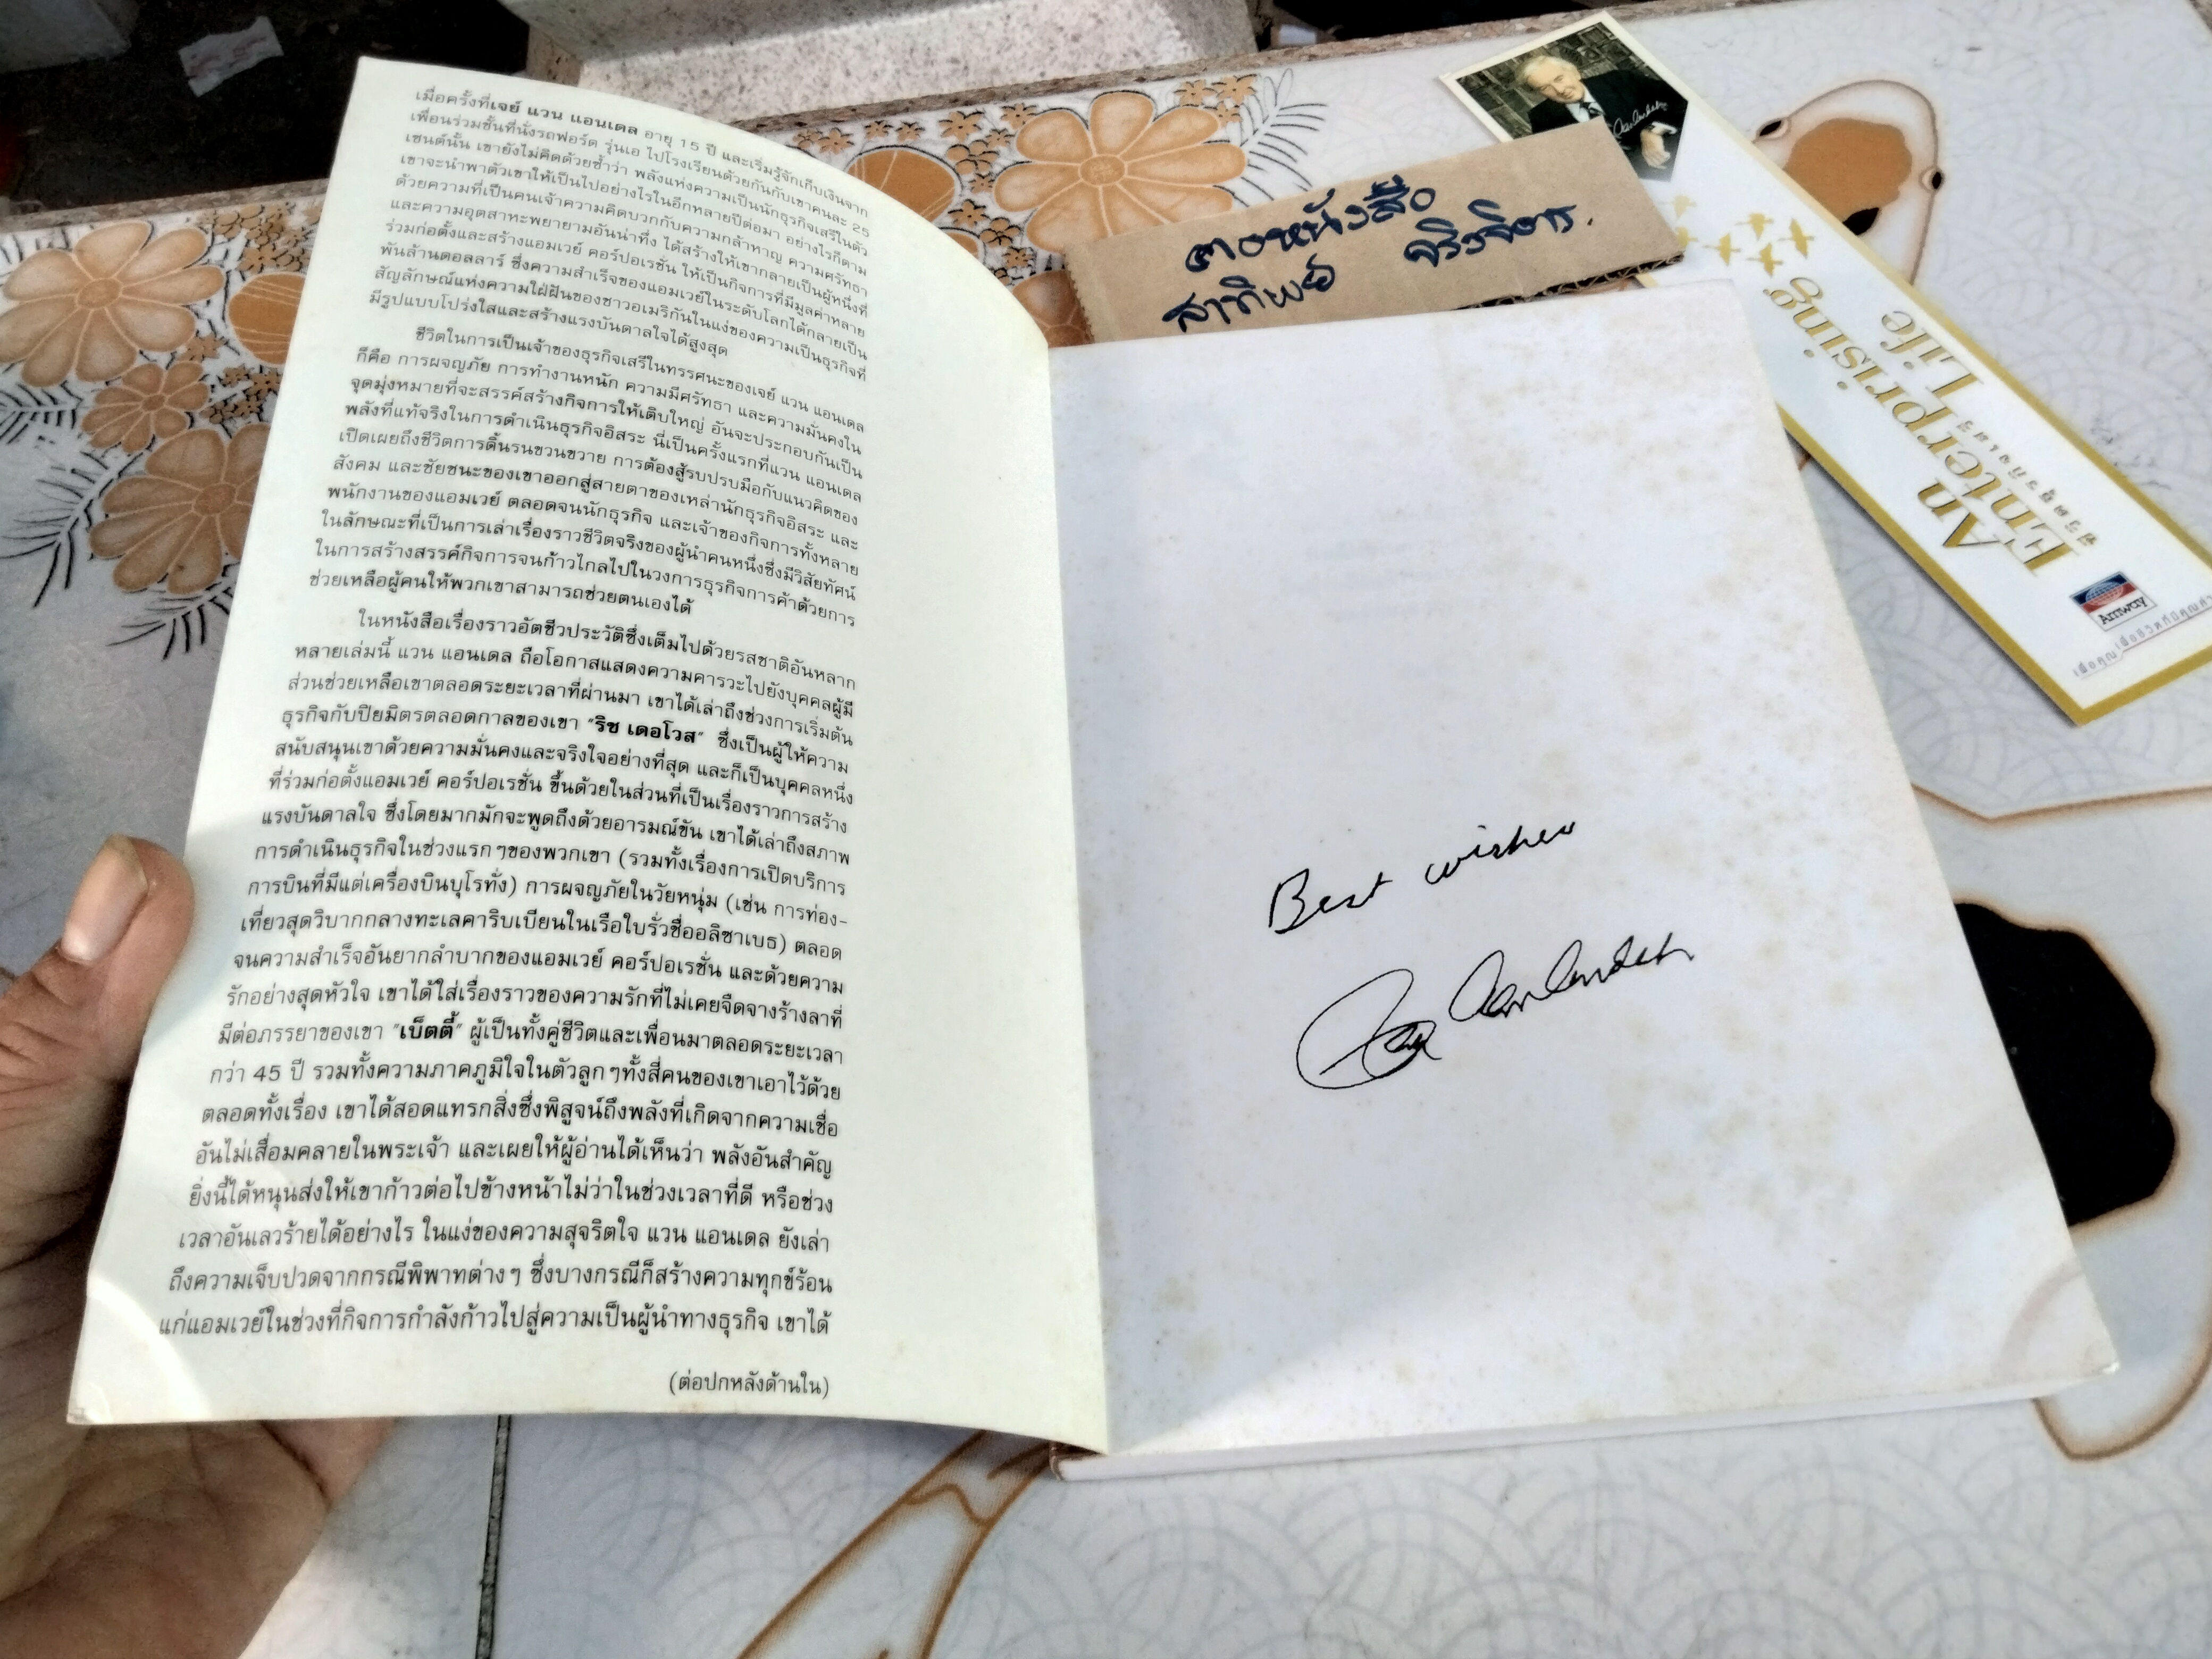 เมื่อครั้งที่เจย์ แวน แอนเดล อายุ 15 ปี และเริ่มรู้จักเก็บเงินจาก
เพื่อนร่วมชั้นที่นั่งรถฟอร์ด รุ่นเอ ไปโรงเรียนด้วยกันกับเขาคนละ 25
เซนต์นั้น เขายังไม่คิดด้วยซ้ำว่า พลังแห่งความเป็นนักธุรกิจเสรีในตัว
เขาจะนำพาตัวเขาให้เป็นไปอย่างไรในอีกหลายปีต่อมา อย่างไรก็ตาม
ด้วยความที่เป็นคนเจ้าความคิดบวกกับความกล้าหาญ ความศรัทธา
และความอุตสาหะพยายามอันน่าทึ่ง ได้สร้างให้เขากลายเป็นผู้หนึ่งที่
ร่วมก่อตั้งและสร้างแอมเวย์ คอร์ปอเรชั่น ให้เป็นกิจการที่มีมูลค่าหลาย
พันล้านดอลลาร์ ซึ่งความสำเร็จของแอมเวย์ในระดับโลกได้กลายเป็น
สัญลักษณ์แห่งความใฝ่ฝันของชาวอเมริกันในแง่ของความเป็นธุรกิจที่
มีรูปแบบโปร่งใสและสร้างแรงบันดาลใจได้สูงสุด
ชีวิตในการเป็นเจ้าของธุรกิจเสรีในทรรศนะของเจย์ แวน แอนเดล
ก็คือ การผจญภัย การทำงานหนัก ความมีศรัทธา และความมั่นคงใน
จุดมุ่งหมายที่จะสรรค์สร้างกิจการให้เติบใหญ่ อันจะประกอบกันเป็น
พลังที่แท้จริงในการดำเนินธุรกิจอิสระ นี่เป็นครั้งแรกที่แวน แอนเดล
เปิดเผยถึงชีวิตการดิ้นรนขวนขวาย การต้องสู้รบปรบมือกับแนวคิดของ
สังคม และชัยชนะของเขาออกสู่สายตาของเหล่านักธุรกิจอิสระ และ
พนักงานของแอมเวย์ ตลอดจนนักธุรกิจ และเจ้าของกิจการทั้งหลาย
ในลักษณะที่เป็นการเล่าเรื่องราวชีวิตจริงของผู้นำคนหนึ่งซึ่งมีวิสัยทัศน์
ในการสร้างสรรค์กิจการจนก้าวไกลไปในวงการธุรกิจการค้าด้วยการ
ช่วยเหลือผู้คนให้พวกเขาสามารถช่วยตนเองได้
ในหนังสือเรื่องราวอัตชีวประวัติซึ่งเต็มไปด้วยรสชาติอันหลาก
หลายเล่มนี้ แวน แอนเดล ถือโอกาสแสดงความคารวะไปยังบุคคลผู้มี
ส่วนช่วยเหลือเขาตลอดระยะเวลาที่ผ่านมา เขาได้เล่าถึงช่วงการเริ่มต้น
ธุรกิจกับปิยมิตรตลอดกาลของเขา "ริช เดอโวส" ซึ่งเป็นผู้ให้ความ
สนับสนุนเขาด้วยความมั่นคงและจริงใจอย่างที่สุด และก็เป็นบุคคลหนึ่ง
ที่ร่วมก่อตั้งแอมเวย์ คอร์ปอเรชั่น ขึ้นด้วยในส่วนที่เป็นเรื่องราวการสร้าง
แรงบันดาลใจ ซึ่งโดยมากมักจะพูดถึงด้วยอารมณ์ขัน เขาได้เล่าถึงสภาพ
การดำเนินธุรกิจในช่วงแรกๆของพวกเขา (รวมทั้งเรื่องการเปิดบริการ
การบินที่มีแต่เครื่องบินบุโรทั่ง) การผจญภัยในวัยหนุ่ม (เช่น การท่อง-
เที่ยวสุดวิบากกลางทะเลคาริบเบียนในเรือใบรั่วชื่ออลิซาเบธ) ตลอด
จนความสำเร็จอันยากลำบากของแอมเวย์ คอร์ปอเรชั่น และด้วยความ
รักอย่างสุดหัวใจ เขาได้ใส่เรื่องราวของความรักที่ไม่เคยจืดจางร้างลาที่
มีต่อภรรยาของเขา "เบ็ตตี้" ผู้เป็นทั้งคู่ชีวิตและเพื่อนมาตลอดระยะเวลา
กว่า 45 ปี รวมทั้งความภาคภูมิใจในตัวลูกๆทั้งสี่คนของเขาเอาไว้ด้วย
ตลอดทั้งเรื่อง เขาได้สอดแทรกสิ่งซึ่งพิสูจน์ถึงพลังที่เกิดจากความเชื่อ
อันไม่เสื่อมคลายในพระเจ้า และเผยให้ผู้อ่านได้เห็นว่า พลังอันสำคัญ
ยิ่งนี้ได้หนุนส่งให้เขาก้าวต่อไปข้างหน้าไม่ว่าในช่วงเวลาที่ดี หรือช่วง
เวลาอันเลวร้ายได้อย่างไร ในแง่ของความสุจริตใจ แวน แอนเดล ยังเล่า
ถึงความเจ็บปวดจากกรณีพิพาทต่างๆ ซึ่งบางกรณีก็สร้างความทุกข์ร้อน
แก่แอมเวย์ในช่วงที่กิจการกำลังก้าวไปสู่ความเป็นผู้นำทางธุรกิจ เขาได้
(ต่อปกหลังด้านใน)
Best wishes
Jay VanAndel
หนังสือ
สาทิพย์ จริงจิตร.
An
Enterprising
Life
ชีวิตธุรกิจเสรี
Amway